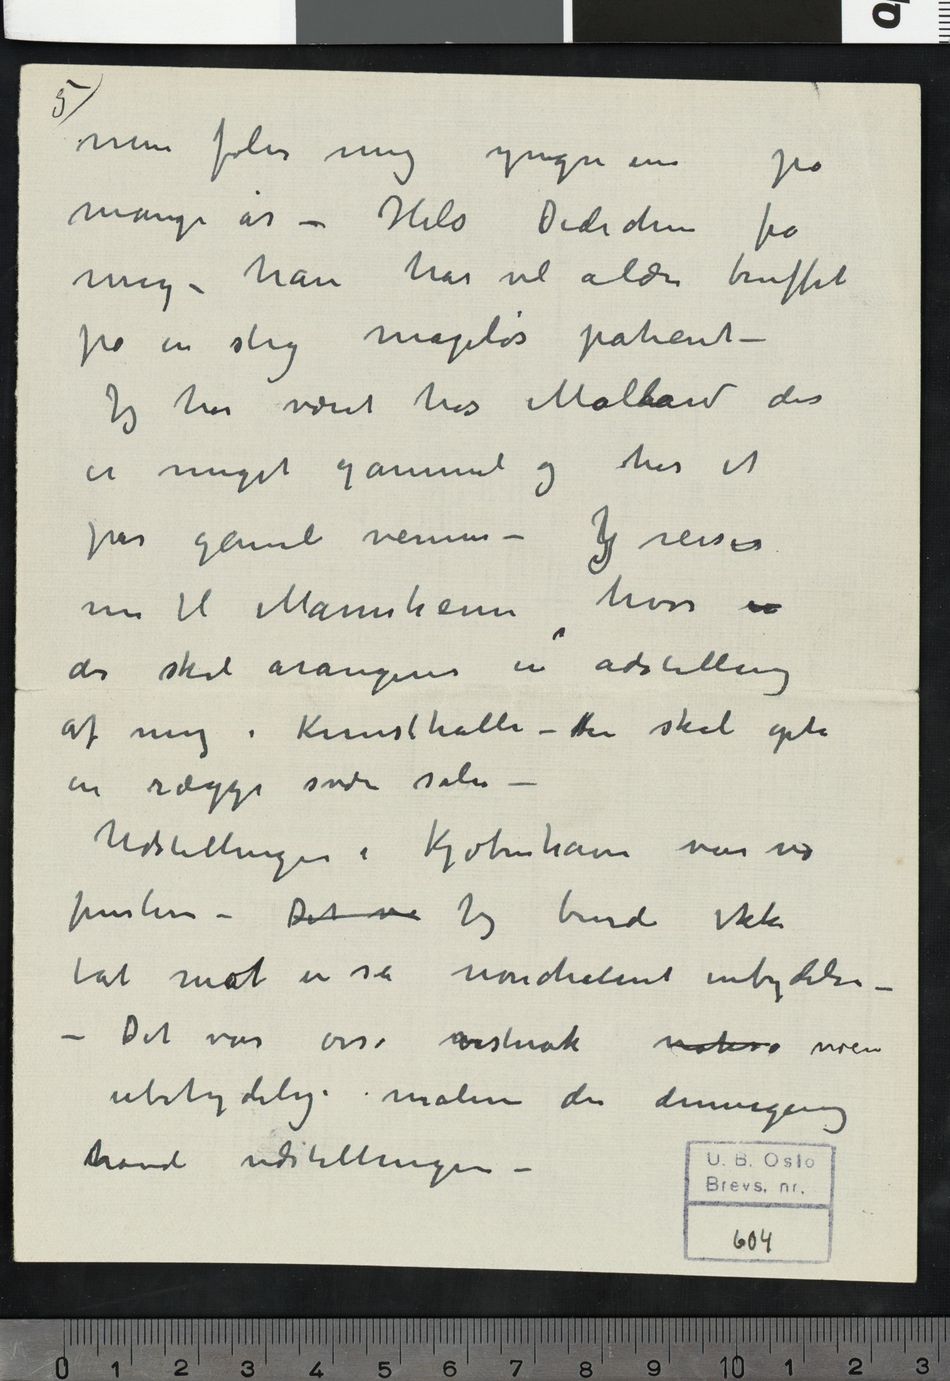 5)
men føler mig yngre en på
mange år – Hils Dedichen fra
mig – han har vel aldri truffet
på en slig mageløs patient –
Jeg har været hos Mollard der
er meget gammel og har et
par gamle venner – Jeg reiser
nu til Mannheim hvor
der skal arangeres en udstilling
af mig i Kunsthalle – skal opta
en rægge svære saler –
Udstillingen i Kjøbenhavn var
– Det va Jeg burde ikke
tat mot en så nonchalent inbydelse –
– Det var også noen
ubetydelige malere der dennegang
havde udstillingen –
U. B. Oslo
Brevs. nr.
604
0 1 2 3 4 5 6 7 8 9 10 1 2 3